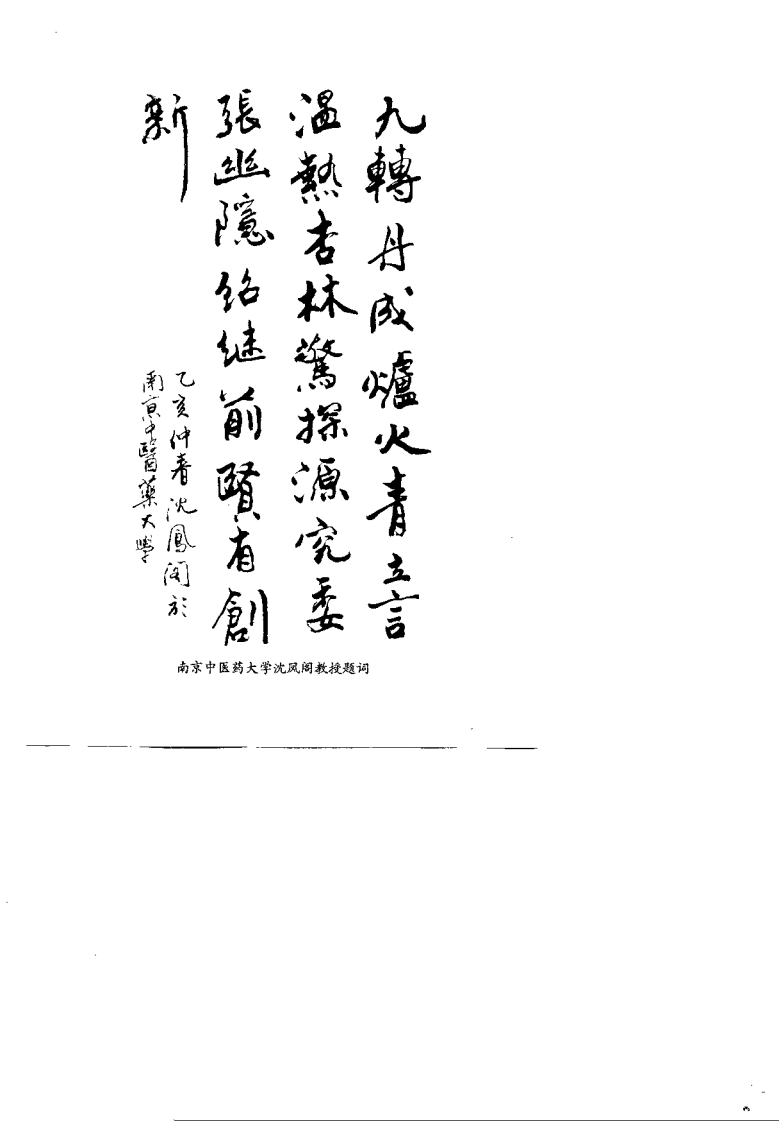 九轉丹成爐火青立言
温熱杏林驚探源究委
張幽隱紹继前賢有創
新
乙亥仲春沈鳳阁於
南京中醫藥大學
南京中医药大学沈凤阁教授题词